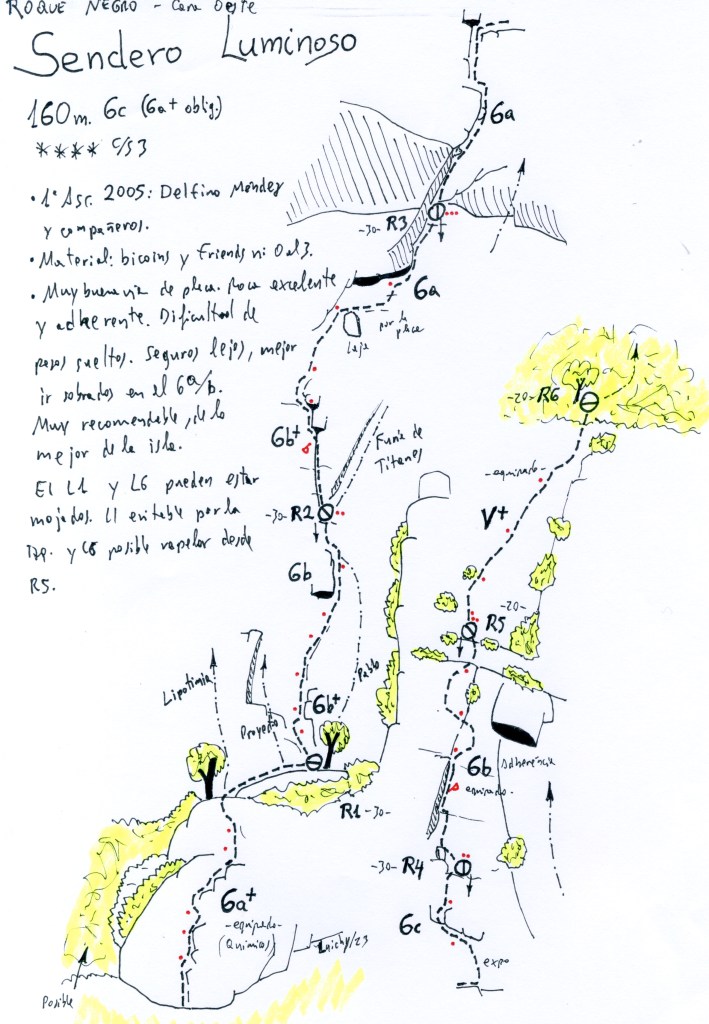 ROQUE NEGRO - Cara Oeste
Sendero Luminoso
160m. 6c (6a+ oblig.)
**** C/S3
• 1ª Asc. 2005: Delfino Méndez
y compañeros.
• Material: bicoins y Friends ni 0 al 3.
• Muy buena via de placa. Roca excelente
y adherente. Dificultad de
pasos sueltos. Seguros lejos, mejor
ir sobrados en el 6a/b.
Muy recomendable, de lo
mejor de la isla.
El L1 y L6 pueden estar
mojados. L1 evitable por la
Izq. y L6 posible rapelar desde
R5.
6a
-30- R3
6a
por la
placa
Laja
6b+
Furia de
Titanes
-30- R2
6b
Pablo
Lipotimia
Proyecto
6b+
R1 -30-
6a+
-equipado-
(Químicos)
Luichy/23
Posible
-20- R6
-equipado-
V+
-20-
R5
6b
Adherencia
equipado-
-30- R4
6c
expo